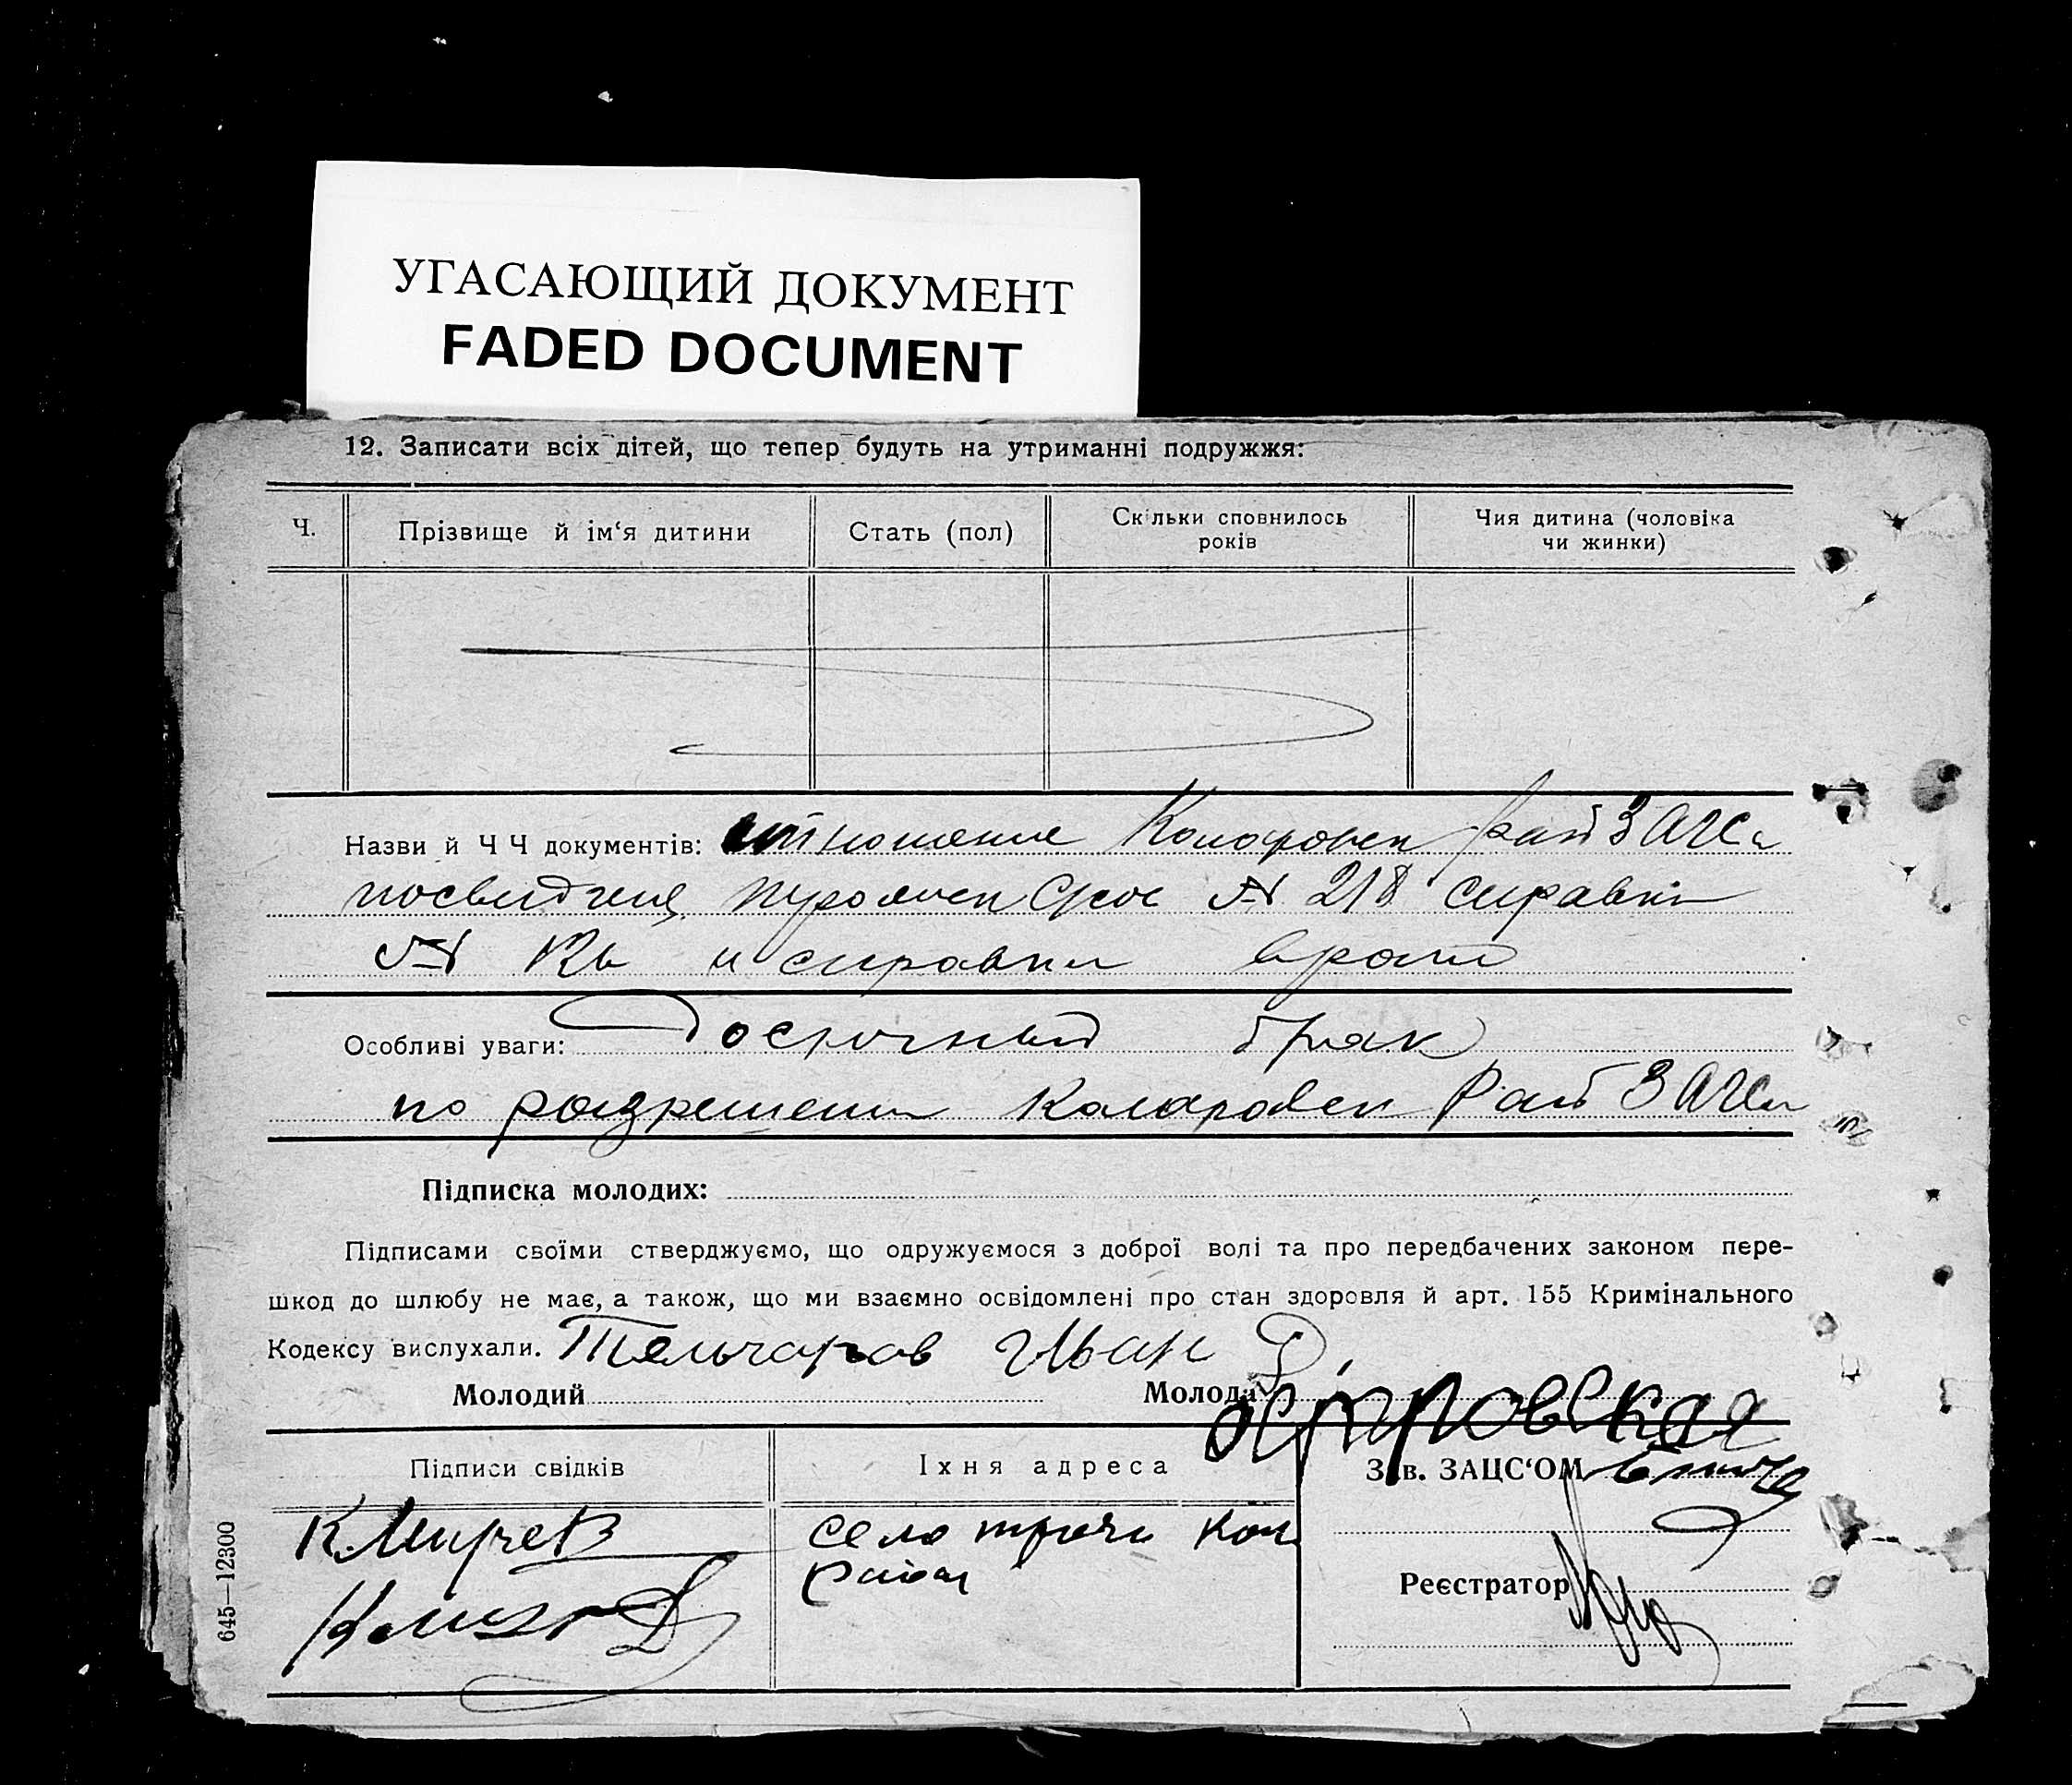 УГАСАЮЩИЙ ДОКУМЕНТ
FADED DOCUMENT
12. Записати всіх дітей, що тепер будуть на утриманні подружжя:
Ч.
Прізвище й ім‘я дитини
Стать (пол)
Скільки сповнилось
років
Чия дитина (чоловіка
чи жинки)
Назви й Ч Ч документів: отношение Коларовск рай ЗАГСа
№ 218 справки
№ и справки
Особливі уваги: Досрочный брак
по разрешении Коларовск Рай ЗАГСа
Підписка молодих:
Підписами своїми стверджуємо, що одружуємося з доброї волі та про передбачених законом пере-
шкод до шлюбу не має, а також, що ми взаємно освідомлені про стан здоровля й арт. 155 Кримінального
Кодексу вислухали. Тельчаров Иван
Молодий
Молода
Підписи свідків
Їхня адреса
Зав. ЗАЦС‘ОМ
К. Мирчев
село Кол.
район
Реєстратор
645—12300